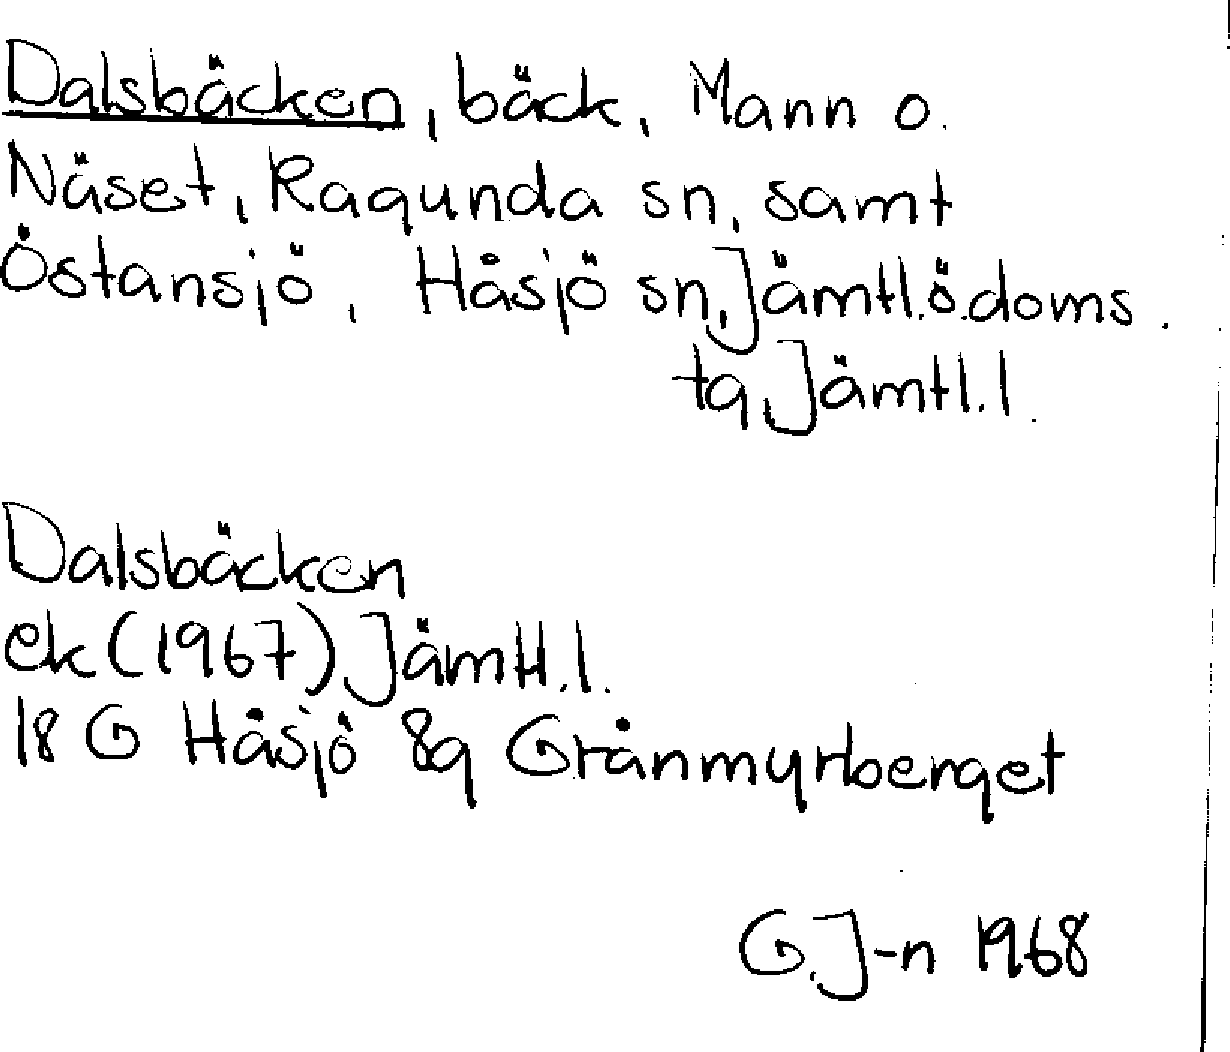 Dalsbäcken, bäck, Mann o.
Näset, Ragunda sn, samt
Östansjö, Håsjö sn, Jämtl.ö.doms.
tg, Jämtl.l.
Dalsbäcken
ek (1967) Jämtl.l.
18 G Håsjö 8g Grånmyrberget
G.J-n 1968